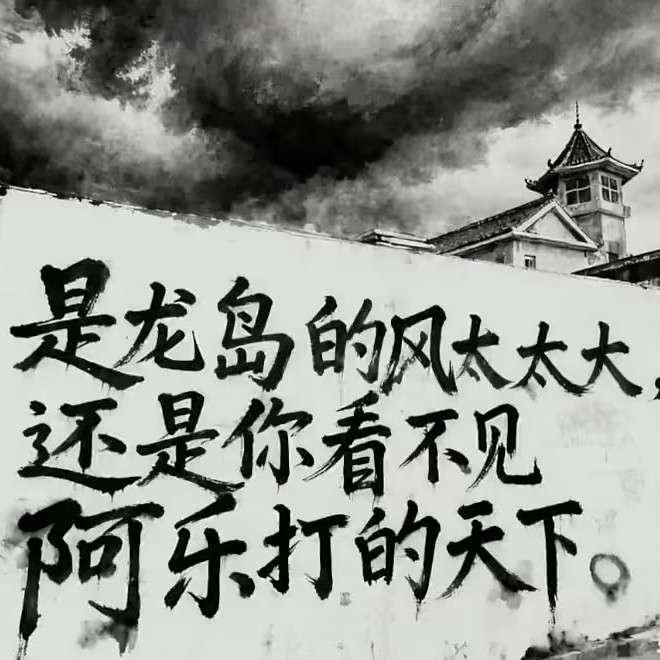 是龙岛的风太太大，
还是你看不见
阿乐打的天下。